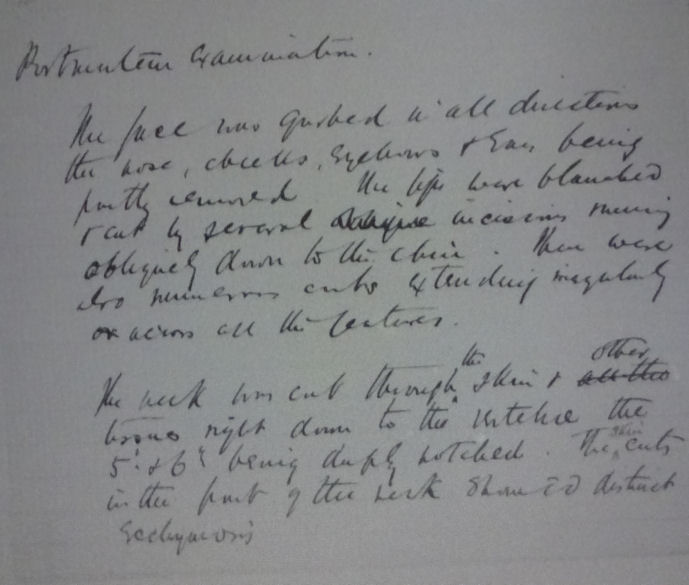 Postmortem Examination.
The face was gashed in all directions
the nose, cheeks, eyebrows & ears being
partly removed The lips were blanched
& cut by several oblique incisions running
obliquely down to the chin. There were
also numerous cuts extending irregularly
across all the features.
the other
The neck was cut through skin & all the
tissues right down to the vertebrae the
5th & 6th being deeply notched. The skin cuts
in the front of the neck showed distinct
Ecchymosis